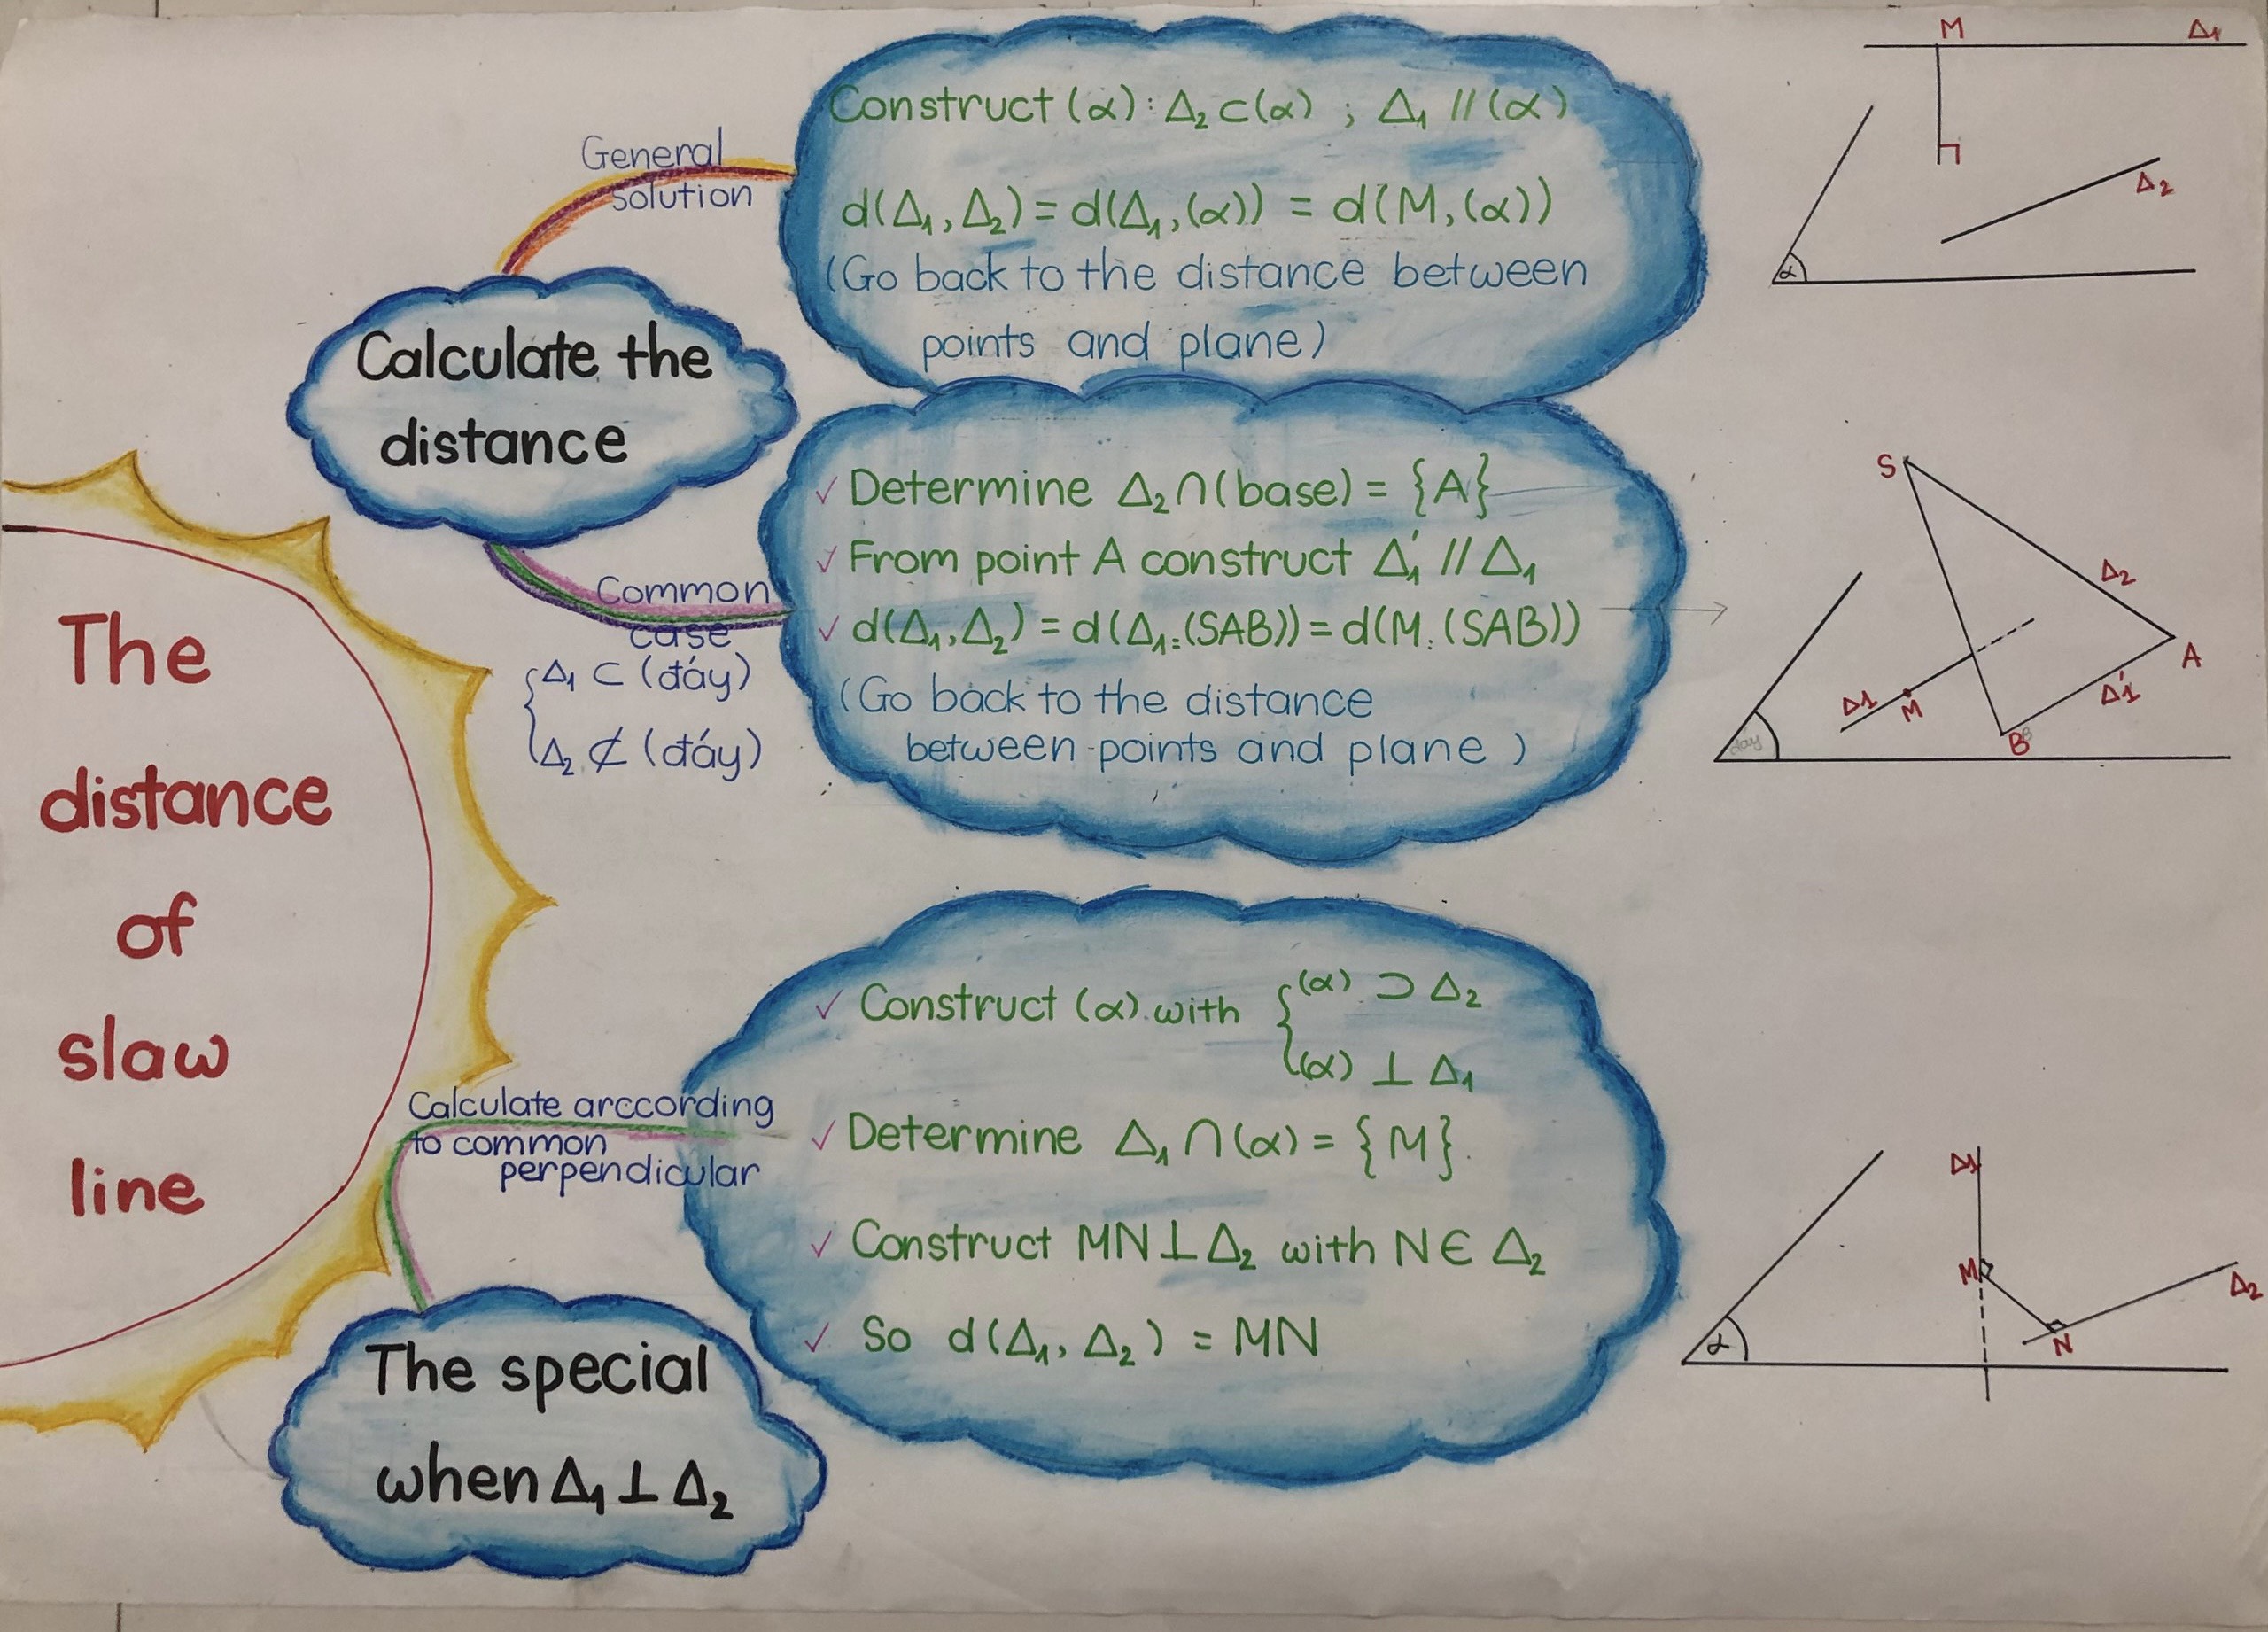 The
distance
of
slaw
line
Calculate the
distance
General
solution
Construct (α) : Δ₂ ⊂ (α) ; Δ₁ // (α)
d(Δ₁, Δ₂) = d(Δ₁, (α)) = d(M, (α))
(Go back to the distance between
points and plane)
M
Δ₁
Δ₂
α
Common
case
Δ₁ ⊂ (đáy)
Δ₂ ⊄ (đáy)
✓ Determine Δ₂ ∩ (base) = {A}
✓ From point A construct Δ₁' // Δ₁
✓ d(Δ₁, Δ₂) = d(Δ₁: (SAB)) = d(M. (SAB))
(Go back to the distance
between points and plane)
S
Δ₂
A
Δ'1
B
Δ1
M
đáy
The special
when Δ₁ ⊥ Δ₂
Calculate arccording
to common
perpendicular
✓ Construct (α) with { (α) ⊃ Δ₂
(α) ⊥ Δ₁
✓ Determine Δ₁ ∩ (α) = {M}.
✓ Construct MN ⊥ Δ₂ with N ∈ Δ₂
✓ So d(Δ₁, Δ₂) = MN
Δ1
M
Δ₂
N
α